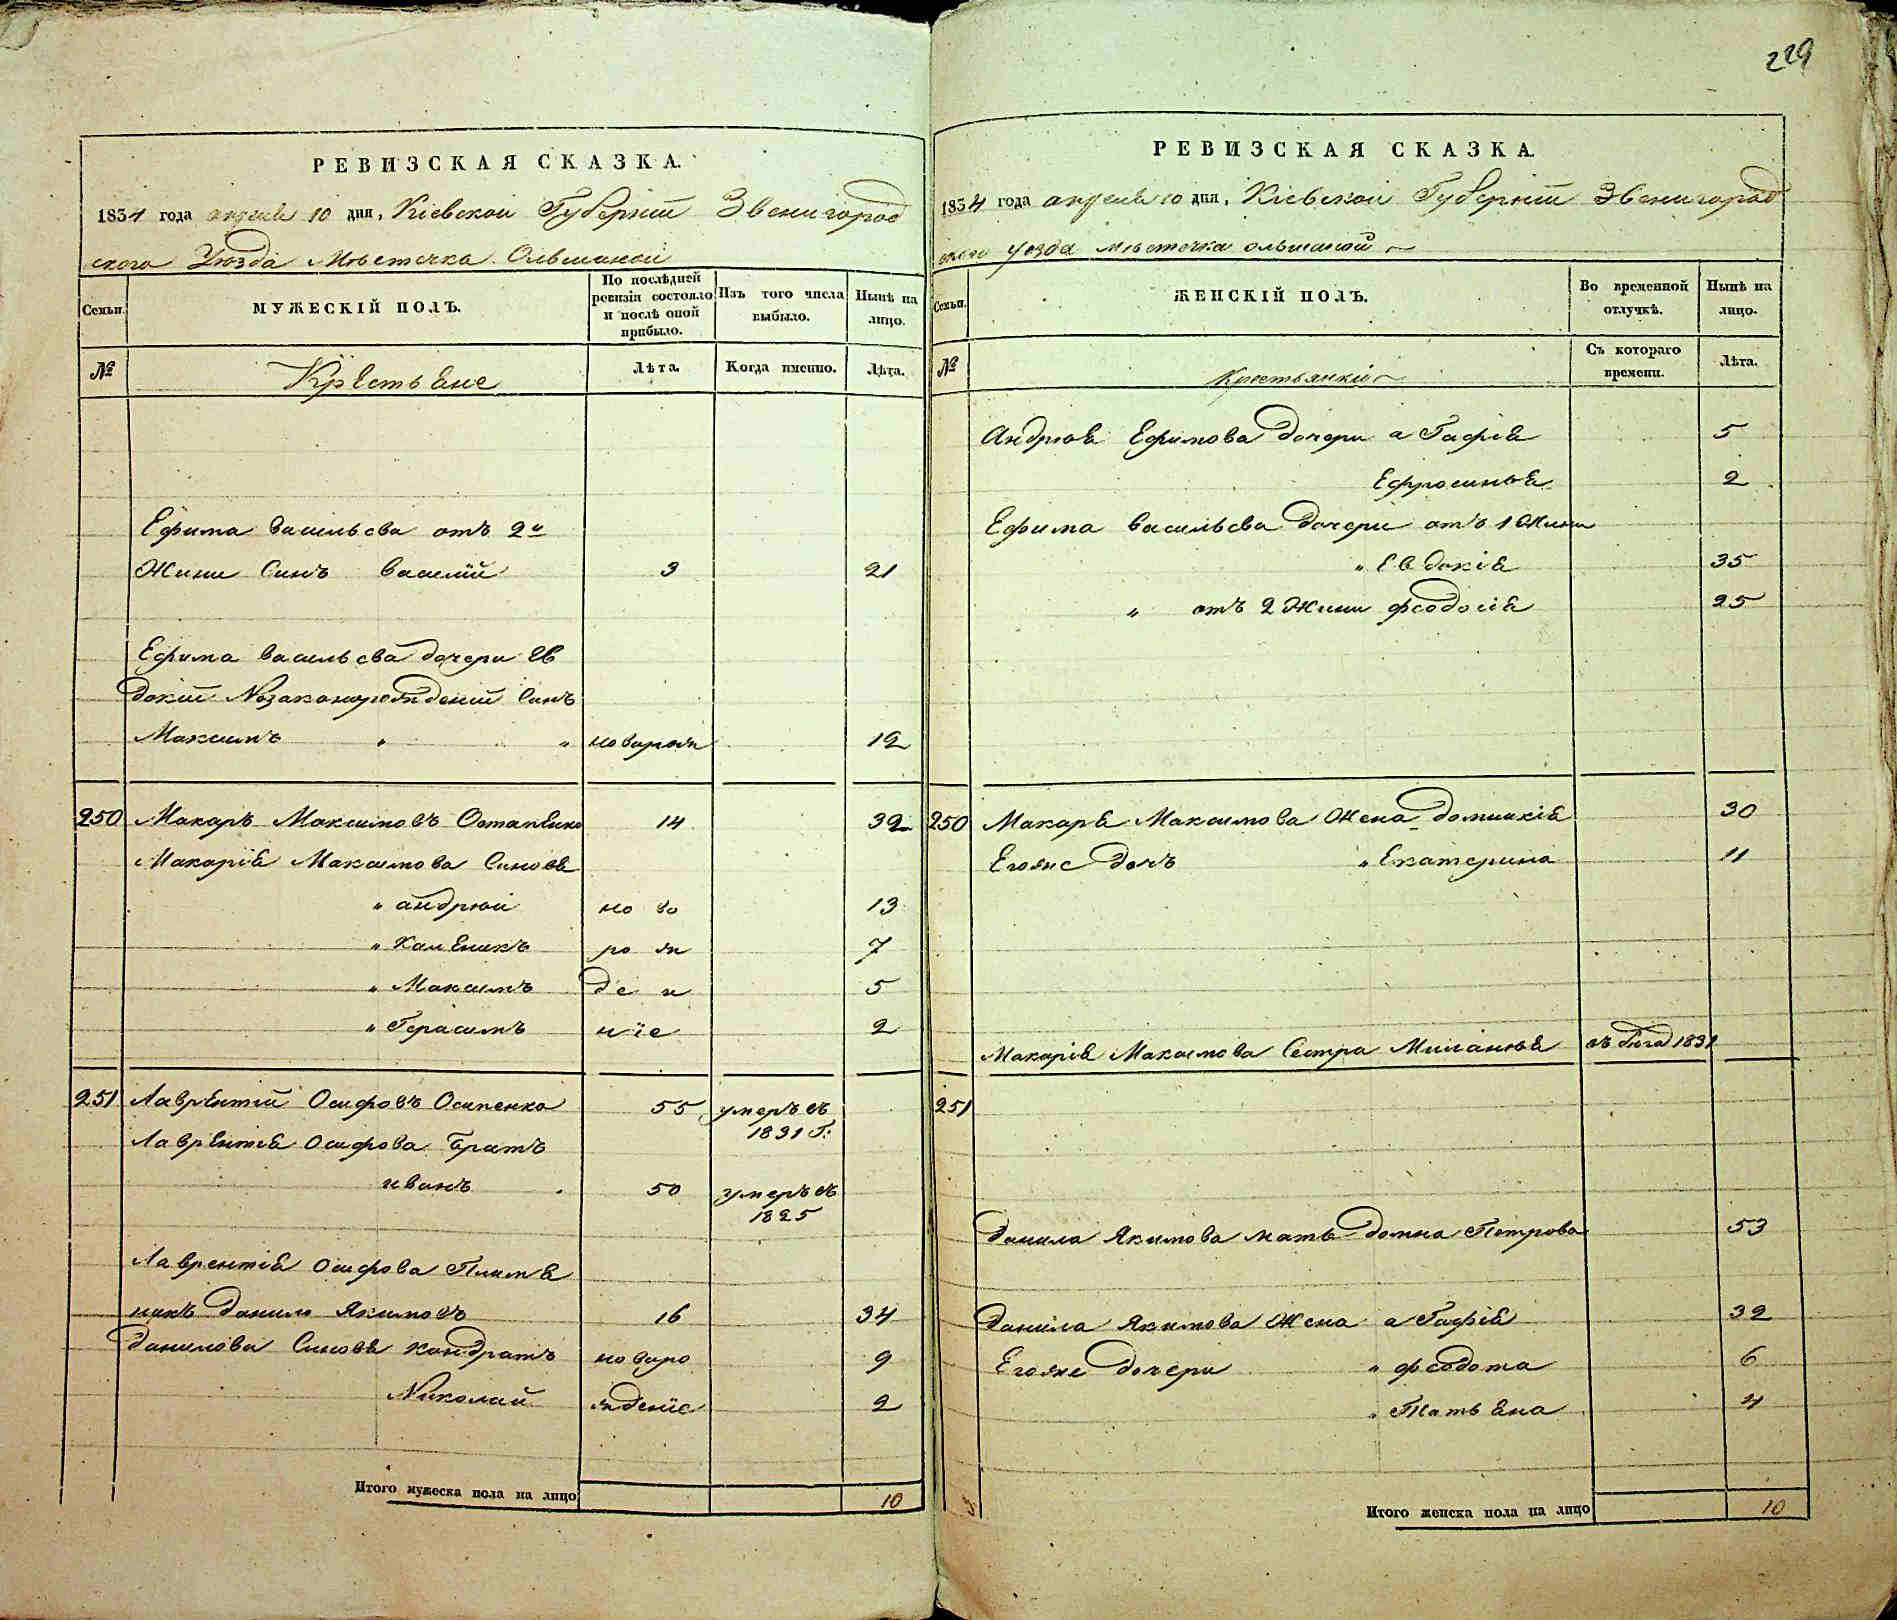 РЕВИЗСКАЯ СКАЗКА.
1834 года апреля 10 дня, Кіевской Губерніи Звенигород
ского Уезда Мѣстечка Ольшаной
Семьи.
МУЖЕСКІЙ ПОЛЪ.
По послѣдней ревизіи состояло и послѣ оной прибыло.
Изъ того числа выбыло.
Нынѣ на лицо.
№
Крестьяне
Лѣта.
Когда именно.
Лѣта.
Ефима Васильева отъ 2й
Жини Синъ Василій 3 21
Ефима Васильева дочери Ев
докіи Незаконорожденій Синъ
Максимъ " " новорож 12
250 Макаръ Максимовъ Остапенко 14 32
Макарія Максимова Синовя
" андрюй но во 13
" Каленикъ ро ж 7
" Максимъ де н 5
" Герасимъ ніе 2
251 Лаврентій Осифовъ Осипенко 55 умеръ въ
1831 Г:
Лаврентія Осифова Братъ
иванъ 50 умеръ въ
1825
Лаврентія Осифова Племя
никъ Данило Якимовъ 16 34
Данилова Синовя Кондратъ новоро 9
Николай жденіе 2
Итого мужеска пола на лицо 10
229
РЕВИЗСКАЯ СКАЗКА.
1834 года апреля 10 дня, Кіевской Губерніи Звенигород
ского Уезда мѣстечка ольшаной
Семьи.
ЖЕНСКІЙ ПОЛЪ.
Во временной отлучкѣ.
Нынѣ на лицо.
№
Крестьянкіи
Съ котораго времени.
Лѣта.
Андрюя Ефимова дочери а Гафія 5
Ефросинья 2
Ефима Васильева дочери отъ 1 Жини
" Евдокія 35
" отъ 2 Жини феодосія 25
250 Макаря Максимова Жена Домникія 30
Егоже дочъ " Екатерина 11
Макарія Максимова Сестра Миланья 1831
251
Данила Якимова мать Домна Петрова 53
Данила Якимова Жена а Гафія 32
Егоже дочери " феодота 6
" Татьяна 4
Итого женска пола на лицо 10